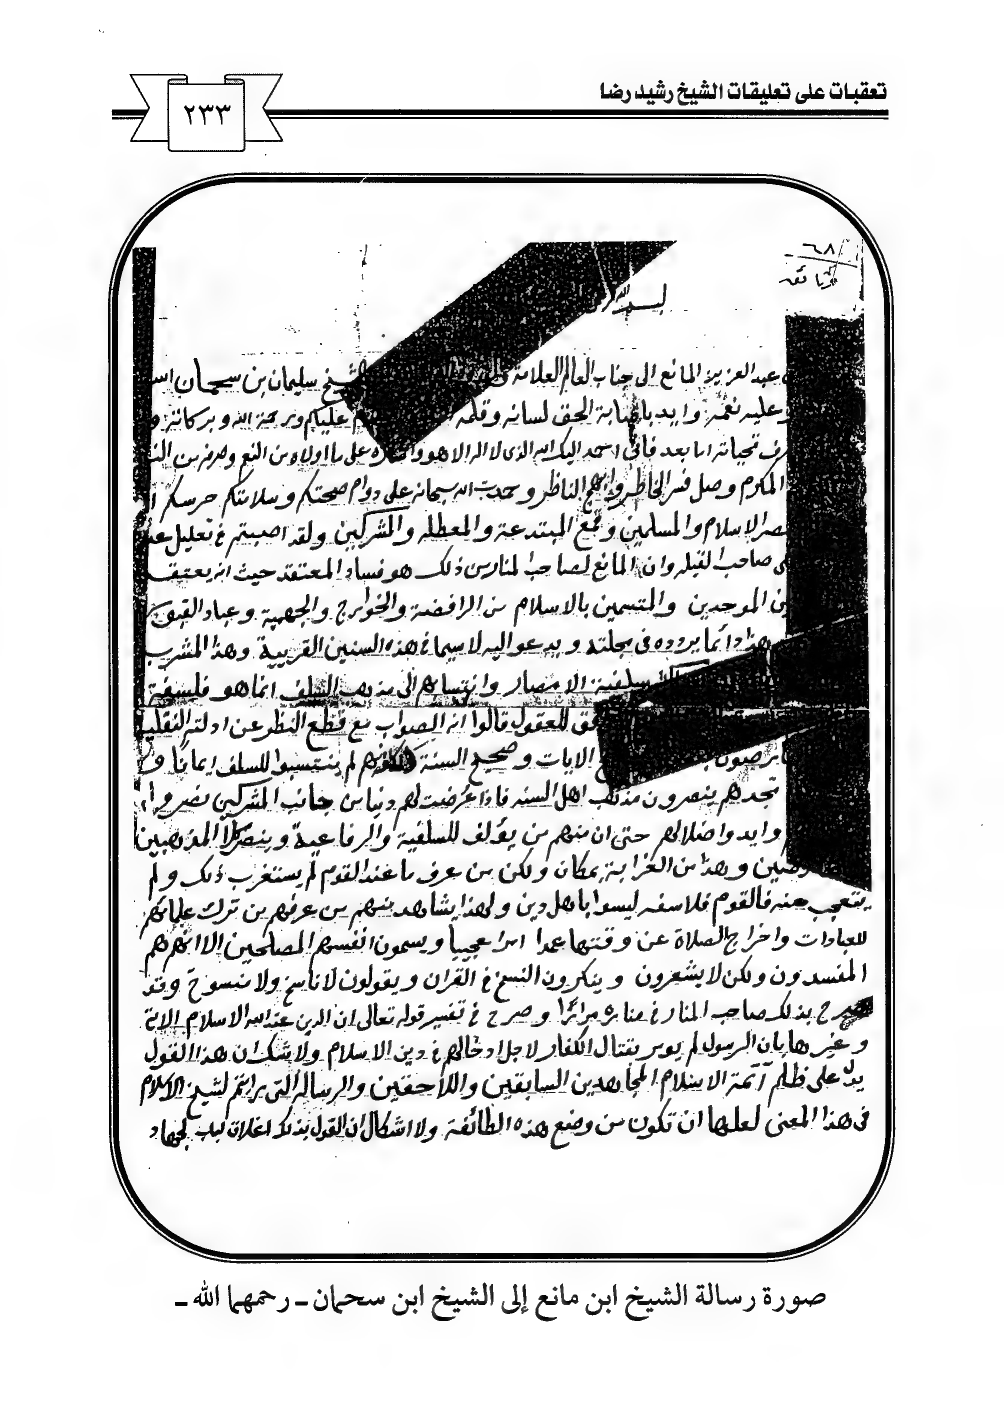 تعقبات على تعليقات الشيخ رشيد رضا
٢٣٣
٦٨
بسم الله
عبد العزيز المانع الى جناب العالم العلامة الشيخ سليمان بن سحمان
عليه نعمه وايد باصابة الحق لسانه وقلمه عليكم ورحمة الله وبركاته
تحياته اما بعد فاني احمد اليك الله الذي لا اله الا هو على ما اولاه من النعم وصرفه من
المكرم وصل فسر الخاطر وابهج الناظر وحمدت الله سبحانه على دوام صحتكم وسلامتكم حرسكم
الاسلام والمسلمين وقمع المبتدعة والمعطله والمشركين ولقد اصبتم في تعليل
صاحب القيله وان المانع لصاحب المنار من ذلك هو فساد المعتقد حيث انه يعتقد
الموحدين والمتسمين بالاسلام من الرافضة والخوارج والجهمية وعباد القبور
هذا دائما يردده في مجلته ويدعو اليه لا سيما في هذه السنين القريبة وهذا المشرب
سلفية الامصار وانتسابهم الى مذهب السلف انما هو فلسفة
للعقول قالوا انه الصواب مع قطع النظر عن ادلته النقلية
الايات وصحيح السنة لم ينتسبوا للسلف ايمانا
تجدهم ينصرون مذهب اهل السنه فاذا عرضت لهم دنيا من جانب المشركين نصروا
وايدوا ضلالهم حتى ان منهم من يؤلف للسلفية والرفاعية وينصر المذهبين
وهذا من الغرابة بمكان ولكن من عرف ما عند القوم لم يستغرب ذلك ولم
يتعجب منه فالقوم فلاسفه ليسوا باهل دين ولهذا يشاهد منهم من عرفهم من ترك علمائهم
للعبادات واخراج الصلاة عن وقتها عمدا امرا عجيبا ويسمون انفسهم المصلحين الا انهم هم
المفسدون ولكن لا يشعرون وينكرون النسخ في القران ويقولون لا ناسخ ولا منسوخ وقد
صرح بذلك صاحب المنار في مناره مرارا وصرح في تفسير قوله تعالى ان الدين عند الله الاسلام الاية
وغيرها بان الرسول لم يومر بقتال الكفار لاجل ادخالهم في دين الاسلام ولا شك ان هذا القول
يدل على ظلم أئمة الاسلام المجاهدين السابقين واللاحقين والرسالة التي لشيخ الاسلام
في هذا المعنى لعلها ان تكون من وضع هذه الطائفة ولا اشكال ان القول بذلك اغلاق لباب الجهاد
صورة رسالة الشيخ ابن مانع إلى الشيخ ابن سحمان ـ رحمهما الله ـ